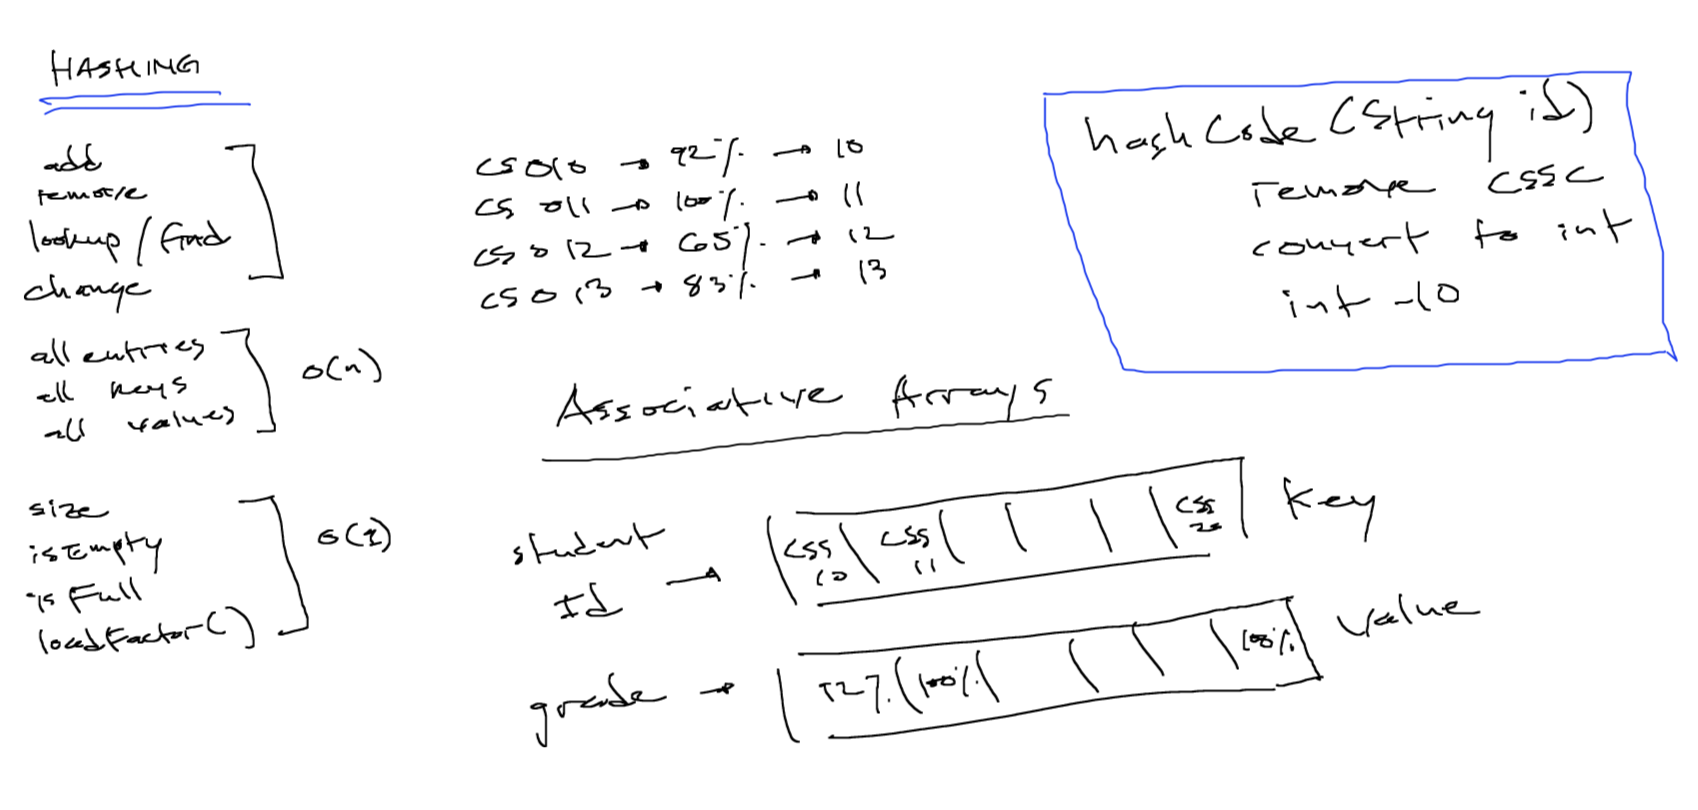 HASHING
add
remove
lookup / find
change
all entries
all keys
all values
O(n)
size
isEmpty
isFull
loadFactor()
O(1)
CS010 → 92% → 10
CS 011 → 100% → 11
CS 012 → 65% → 12
CS013 → 83% → 13
hashCode (String id)
remove CSSC
convert to int
int -10
Associative Arrays
student
Id →
CSS
10
CSS
11
CSS
20
Key
grade →
100%
100%
value